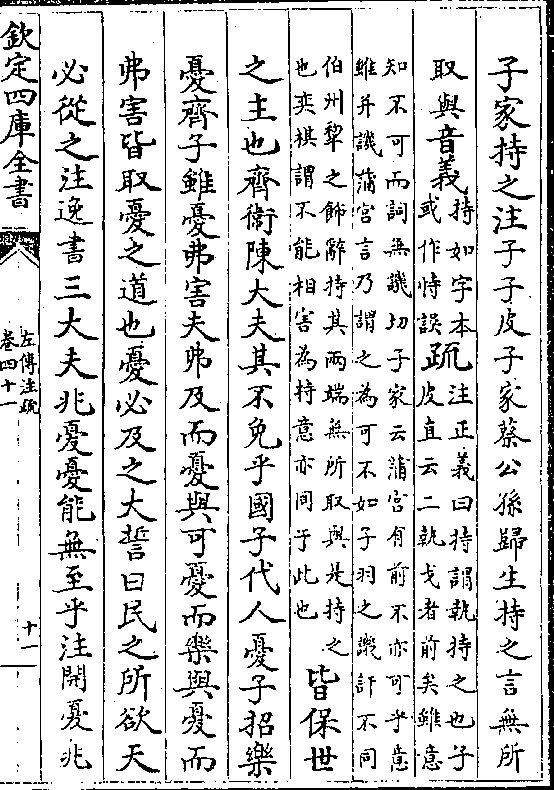 子家持之注子子皮子家蔡公孫歸生持之言無所
取與音義持如字本或作恃誤疏注正義曰持謂執持之也子皮直云二執戈者前矣雖意
知不可而詞無譏切子家云蒲宮有前不亦可乎意
雖并譏蒲宮言乃謂之為可不如子羽之譏訐不同
伯州犂之飾辭持其兩端無所取與是持之
也弈棋謂不能相害為持意亦同于此也
皆保世
之主也齊衛陳大夫其不免乎國子代人憂子招樂
憂齊子雖憂弗害夫弗及而憂與可憂而樂與憂而
弗害皆取憂之道也憂必及之大誓曰民之所欲天
必從之注逸書三大夫兆憂憂能無至乎注開憂兆
欽定四庫全書
左傳注疏
卷四十一
十一